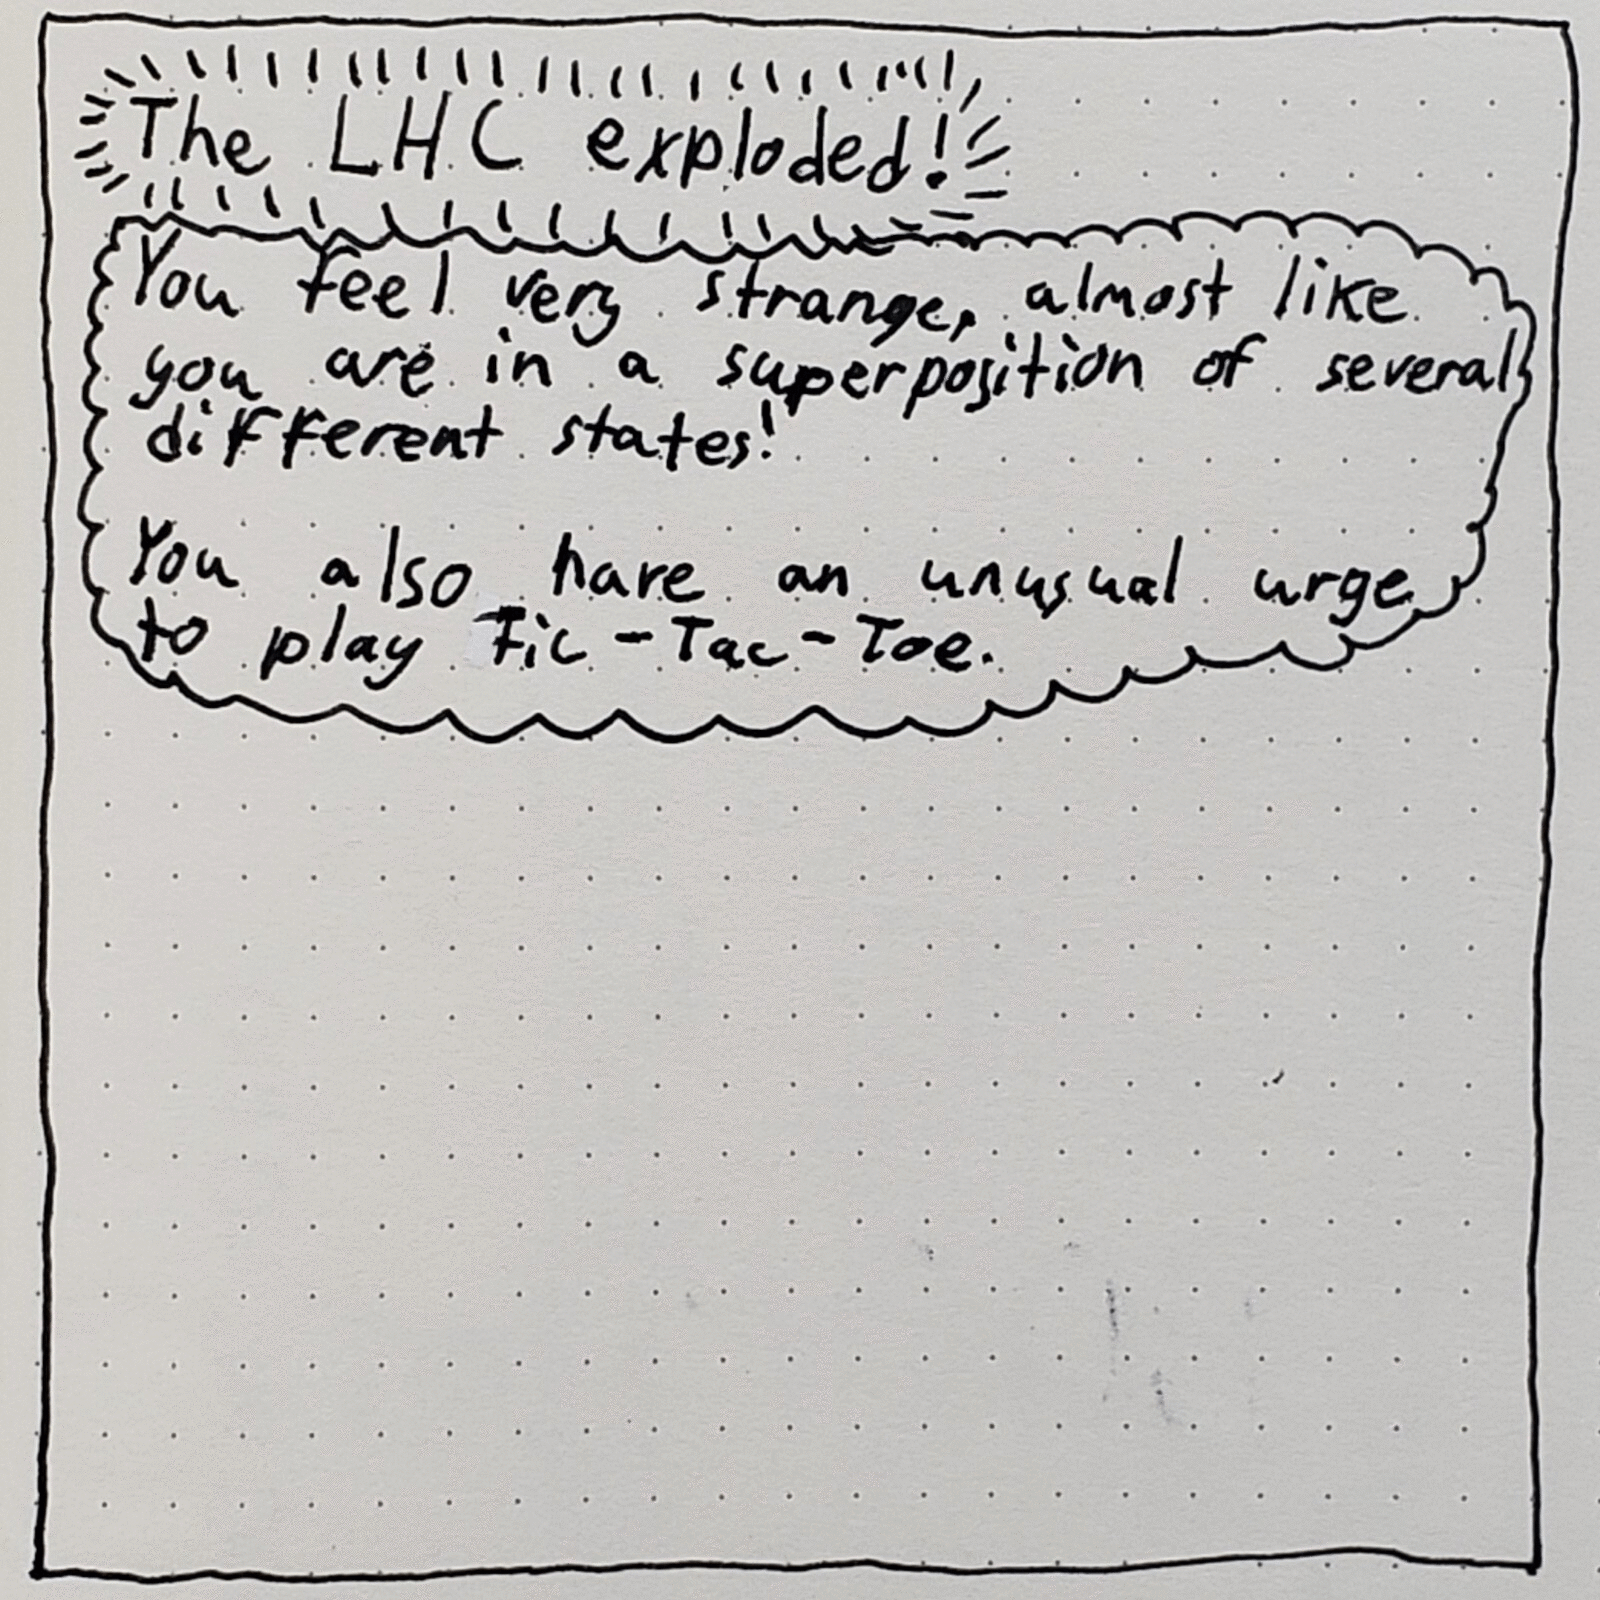 The LHC exploded!
You feel very strange, almost like
you are in a superposition of several
different states!
You also have an unusual urge
to play Tic-Tac-Toe.